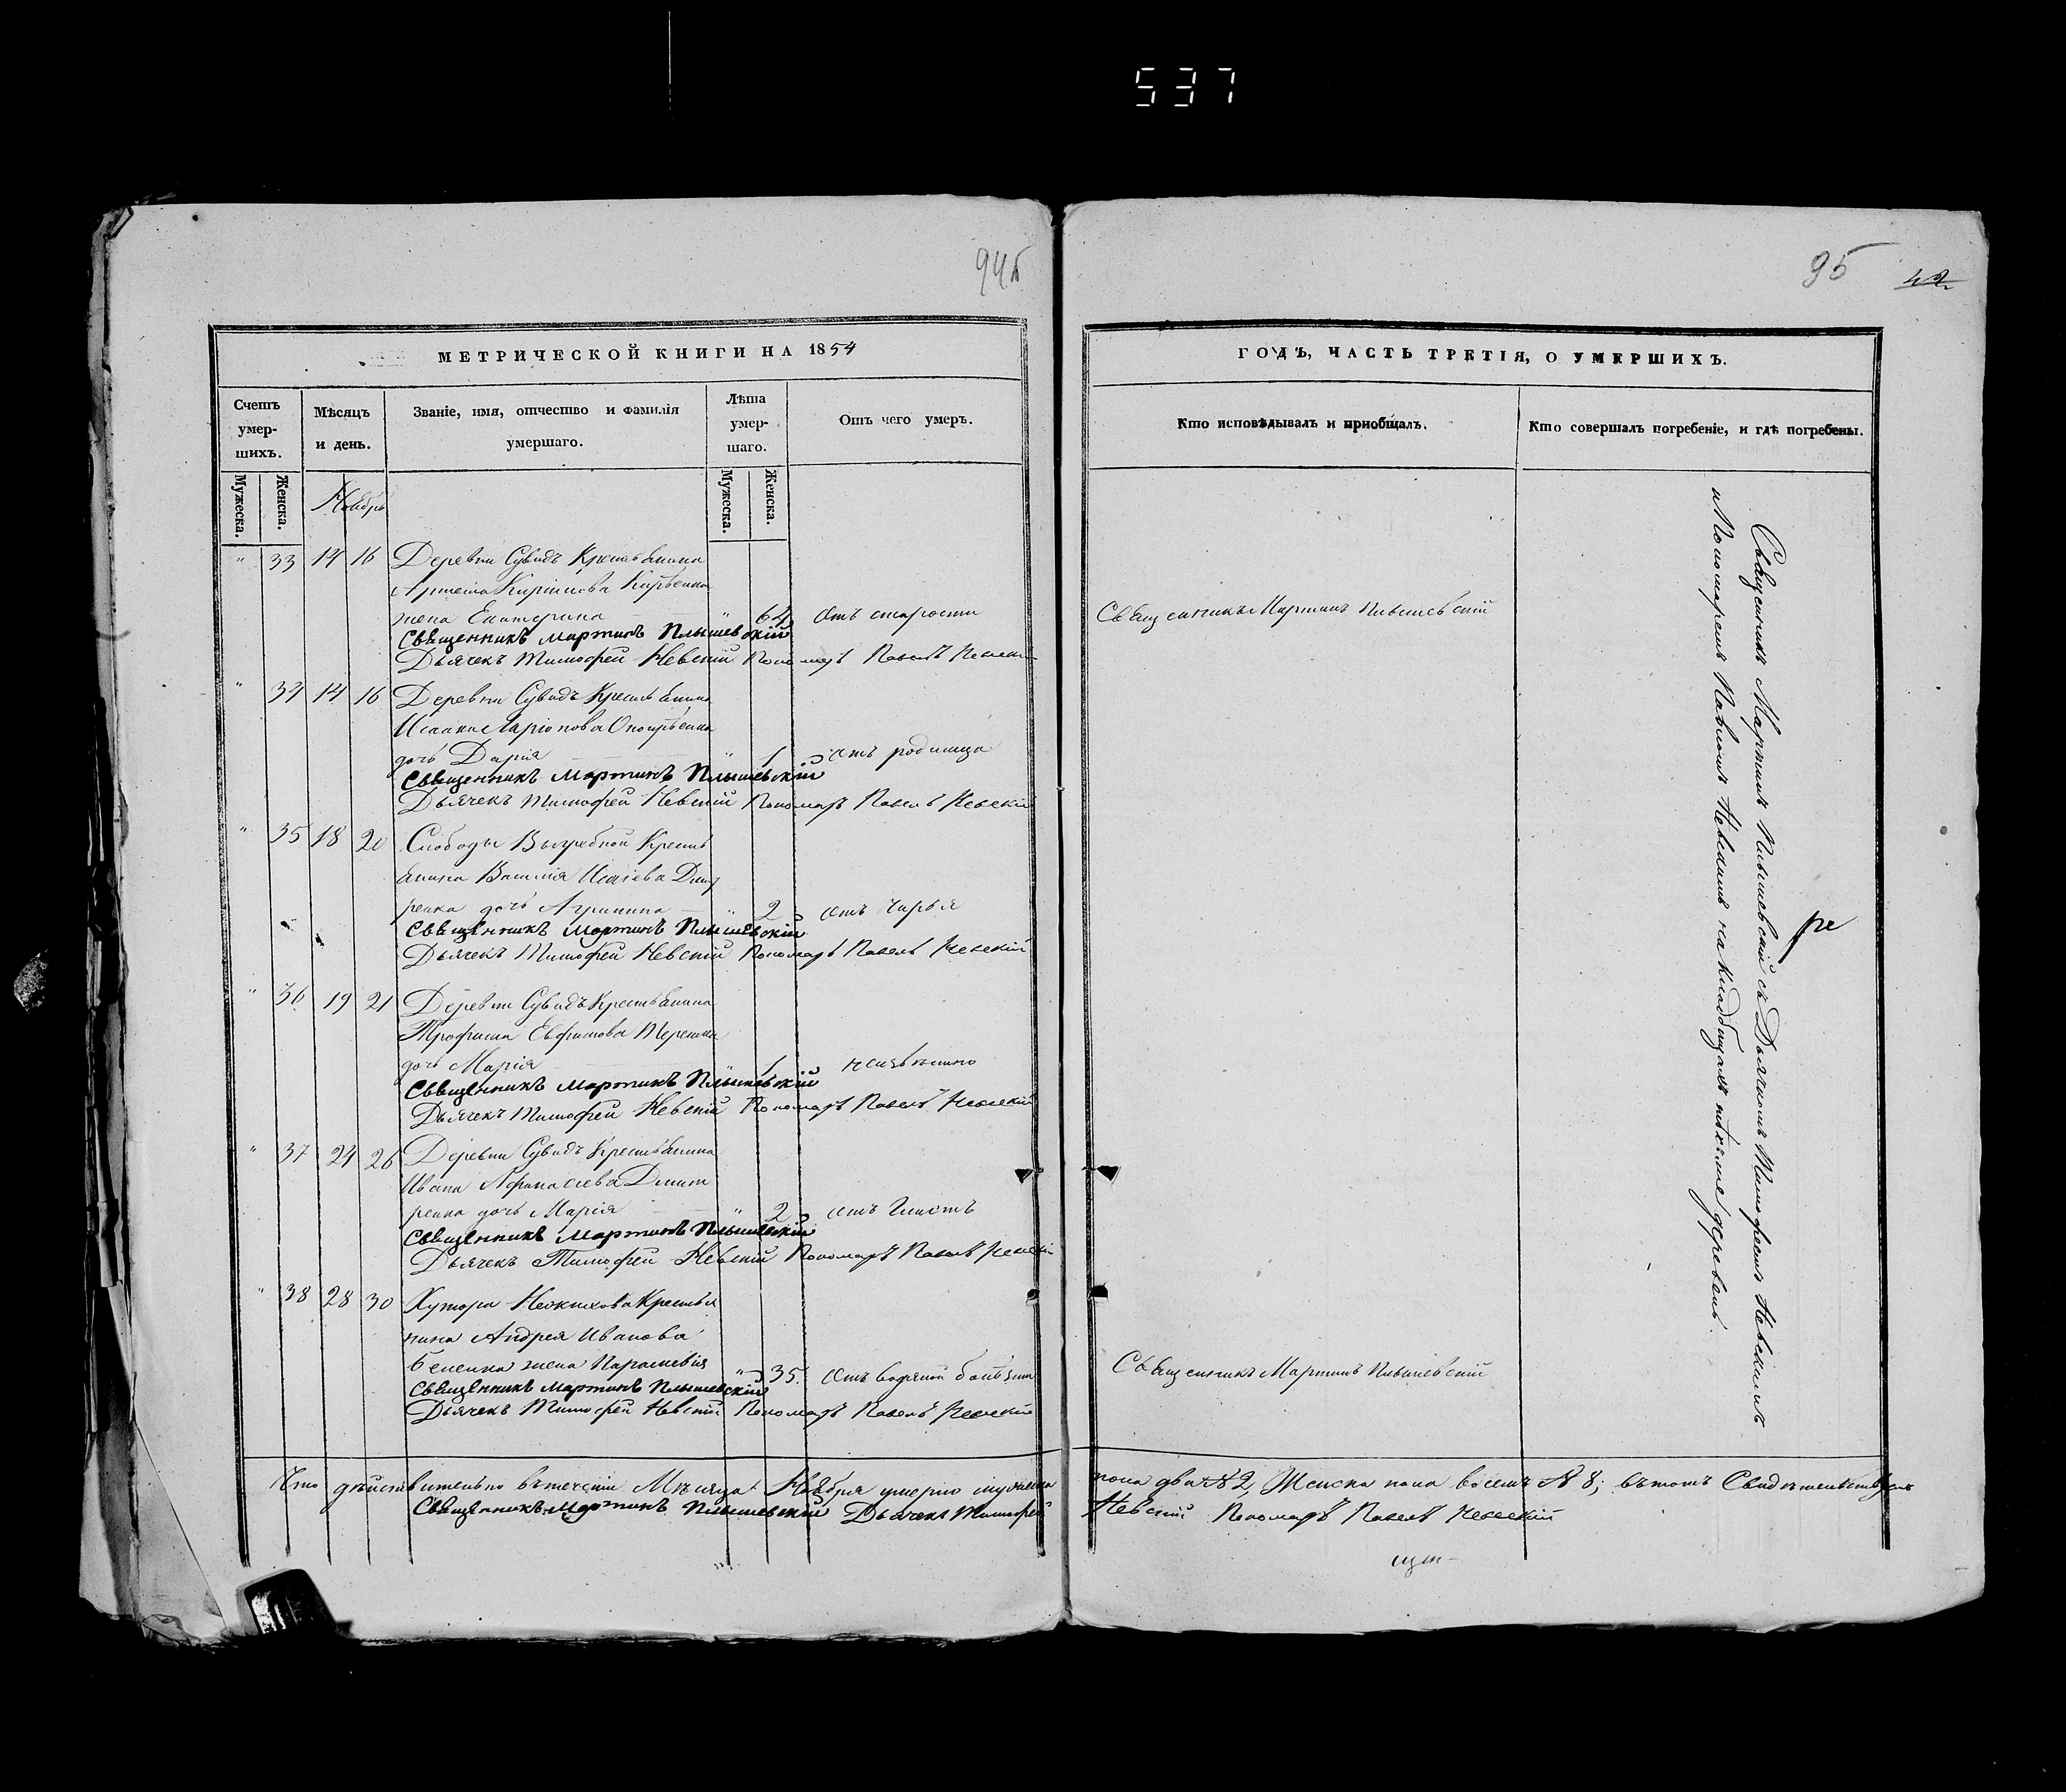 537
94б
МЕТРИЧЕСКОЙ КНИГИ НА 1854
Счетъ умер-шихъ.
Мѣсяцъ и день.
Званіе, имя, отчество и фамилія умершаго.
Лѣта умер-шаго.
Отъ чего умеръ.
Мужеска.
Женска.
Ноябрь
Мужеска.
Женска.
" 33 14 16 Деревни Сувидъ Крестьянина
Артема Кирилова
жена Екатерина " 64 отъ старости
Священникъ Мартинъ Плышевскій
Дьячекъ Тимофей Невскій Пономарь Павелъ Невскій
" 34 14 16 Деревни Сувидъ Крестьянина
Исаака Ларіонова
дочь Дарія " 1 отъ родимца
Священникъ Мартинъ Плышевскій
Дьячекъ Тимофей Невскій Пономарь Павелъ Невскій
" 35 18 20 Слободы Выгребной Кресть
янина Василія Исаіева Дмит
ренка дочь Агрипина " 2 отъ чирья
Священникъ Мартинъ Плышевскій
Дьячекъ Тимофей Невскій Пономарь Павелъ Невскій
" 36 19 21 Деревни Сувидъ Крестьянина
Трофима Евфимова
дочь Марія " 1 неизвѣстно
Священникъ Мартинъ Плышевскій
Дьячекъ Тимофей Невскій Пономарь Павелъ Невскій
" 37 24 26 Деревни Сувидъ Крестьянина
Ивана Афанасіева Дмит
ренка дочь Марія " 2 отъ
Священникъ Мартинъ Плышевскій
Дьячекъ Тимофей Невскій Пономарь Павелъ Невскій
" 38 28 30 Хутора Крестья
нина Андрея Иванова
жена Параскевія " 35. отъ водяной болѣзни
Священникъ Мартинъ Плышевскій
Дьячекъ Тимофей Невскій Пономарь Павелъ Невскій
Что дѣйствительно въ теченіи Мѣсяца Ноября умерло мужеска
Священникъ Мартинъ Плышевскій Дьячекъ Тимофей
95
42
ГОДЪ, ЧАСТЬ ТРЕТІЯ, О УМЕРШИХЪ.
Кто исповѣдывалъ и приобщалъ.
Кто совершалъ погребеніе, и гдѣ погребены.
Священникъ Мартинъ Плышевскій
Священникъ Мартинъ Плышевскій
Священникъ Мартинъ Плышевскій съ Дьячкомъ Тимофеемъ Невскимъ
и Пономаремъ Павломъ Невскимъ на кладбищахъ тѣхъ же деревень.
пола два № 2, Женска пола восемь № 8; въ томъ Свидѣтельствуемъ
Невскій Пономарь Павелъ Невскій